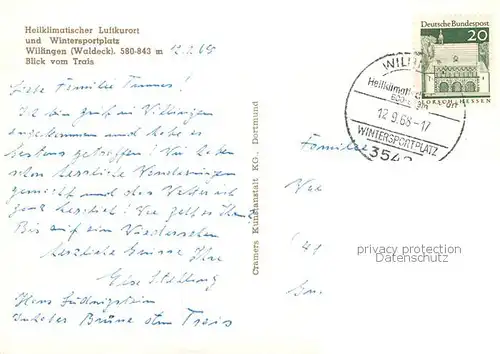 Heilklimatischer Luftkurort
und Wintersportplatz
Willingen (Waldeck), 580-843 m
Blick vom Trais
12.9.68
Liebe Familie
Ich bin gut in Willingen
angekommen und habe es
bestens getroffen! Wir haben
schon herrliche Wanderungen
gemacht und das Wetter ist
ganz herrlich! Wie geht es Ihnen?
Bis auf ein Wiedersehen
herzliche Grüsse Ihre
Haus Ludwigstein
Cramers Kunstanstalt KG., Dortmund
Deutsche Bundespost
20
LORSCH-HESSEN
12.9.68-17
WINTERSPORTPLATZ
Familie
privacy protection
Datenschutz